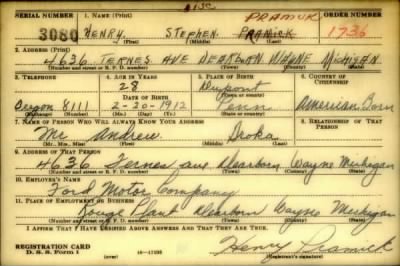 ALSO
SERIAL NUMBER 1. NAME (Print) PRAMUK ORDER NUMBER
3080 HENRY STEPHEN PRAMICK 1736
(First) (Middle) (Last)
2. ADDRESS (Print)
4636 TERNES AVE DEARBORN WAYNE MICHIGAN
(Number and street or R. F. D. number) (Town) (County) (State)
3. TELEPHONE 4. AGE IN YEARS 5. PLACE OF BIRTH 6. COUNTRY OF CITIZENSHIP
28 Dupont
DATE OF BIRTH (Town or county)
Oregon 8111 2-20-1912 Penn American Born
(Exchange) (Number) (Mo.) (Day) (Yr.) (State or country)
7. NAME OF PERSON WHO WILL ALWAYS KNOW YOUR ADDRESS 8. RELATIONSHIP OF THAT PERSON
Mr Andrew
(Mr., Mrs., Miss) (First) (Middle) (Last)
9. ADDRESS OF THAT PERSON
4636 Ternes ave Dearborn Wayne Michigan
(Number and street or R. F. D. number) (Town) (County) (State)
10. EMPLOYER'S NAME
Ford Motor Company
11. PLACE OF EMPLOYMENT OR BUSINESS
Rouge Plant Dearborn Wayne Michigan
(Number and street or R. F. D. number) (Town) (County) (State)
I AFFIRM THAT I HAVE VERIFIED ABOVE ANSWERS AND THAT THEY ARE TRUE.
REGISTRATION CARD
D. S. S. Form 1 (over) 16-17105 Henry Pramick
(Registrant's signature)